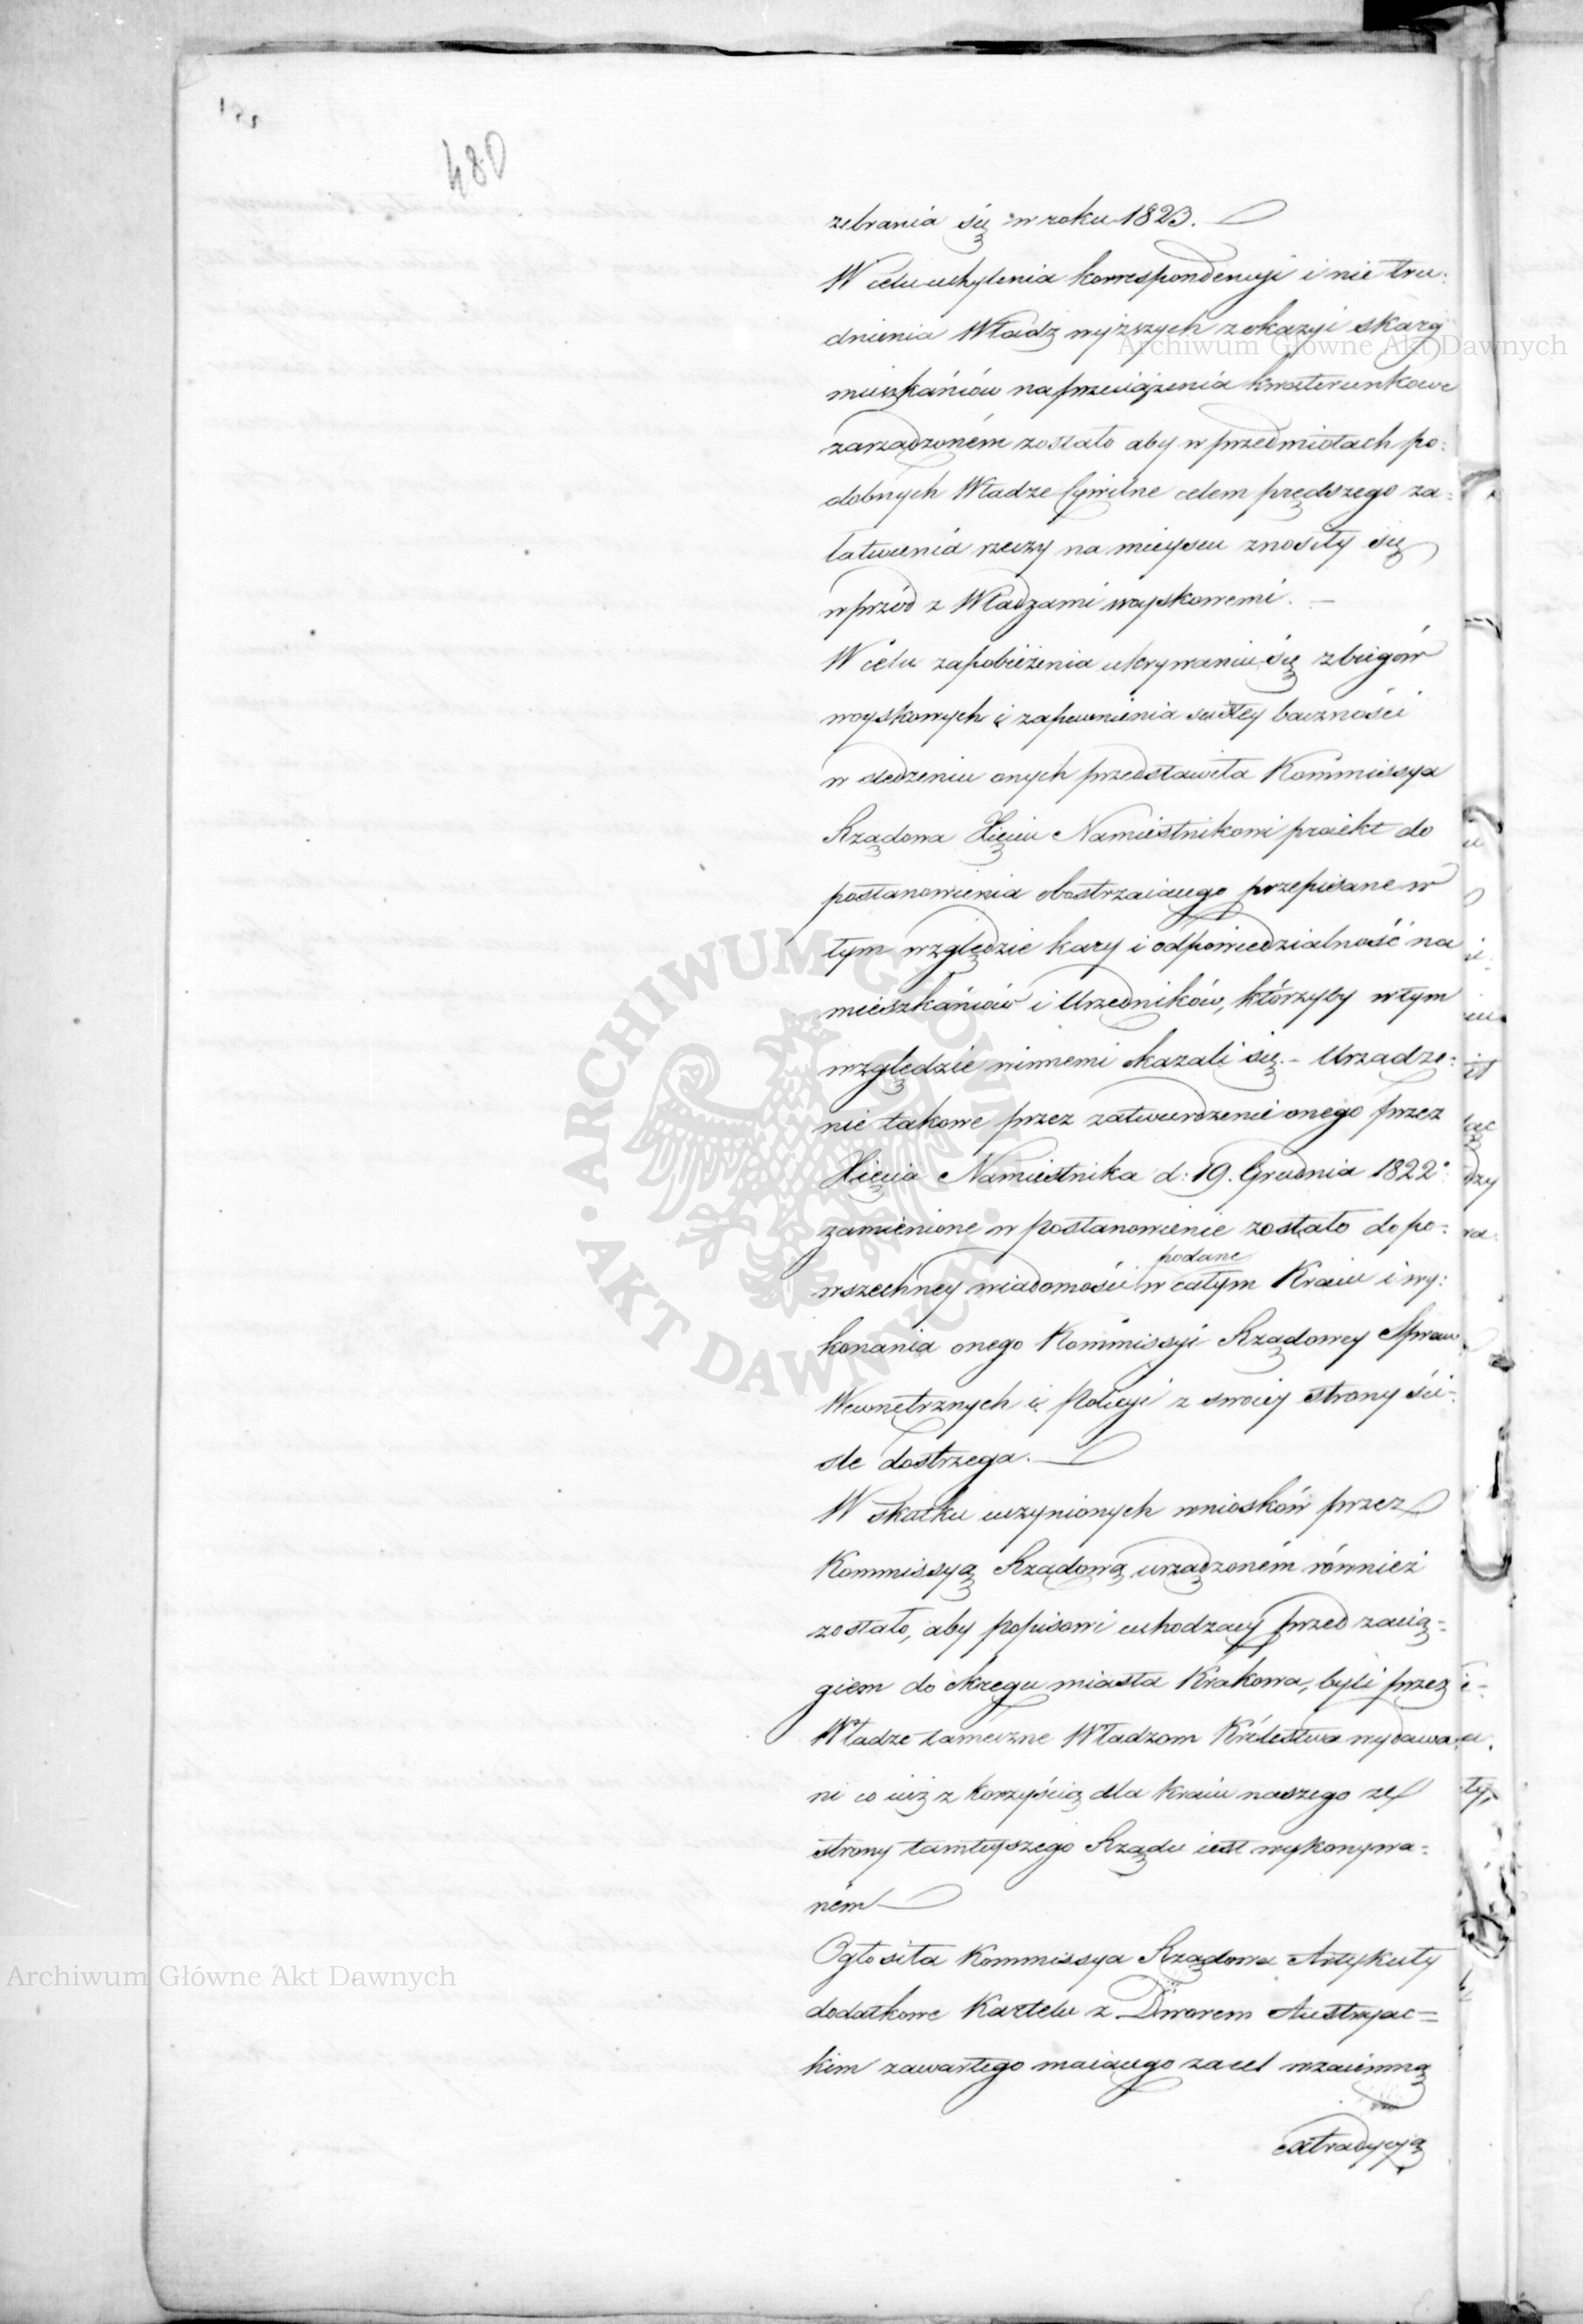 480
zebrania się w roku 1823.
W celu uchylenia korrespondencyi i nie tru-
dnienia Władz wyższych z okazyi skarg
mieszkańców na przeciążenia kwaterunkowe
zarządzoném zostało aby w przedmiotach po-
dobnych Władze Cywilne celem prędszego za-
łatwienia rzeczy na mieyscu znosiły się
wprzód z Władzami woyskowemi. —
W celu zapobieżenia ukrywaniu się zbiegów
woyskowych i zapewnienia ścisłey baczności
w śledzeniu onych przedstawiła Kommissya
Rządowa Xięciu Namiestnikowi proiekt do
postanowienia obostrzaiącego przepisane w
tym względzie kary i odpowiedzialność na
mieszkańców i Urzędników, którzyby w tym
względzie winnemi okazali się. – Urządze-
nie takowe przez zatwierdzenie onego przez
Xięcia Namiestnika d: 19. Grudnia 1822
zamienione w postanowienie zostało do po-
podane
wszechney wiadomości w całym Kraiu i wy-
konania onego Kommissyi Rządowey Spraw
Wewnętrznych i Policyi z swoiey strony ści-
śle dostrzega. —
W skutku uczynionych wniosków przez
Kommissyą Rządową urządzoném również
zostało, aby popisowi uchodzący przed zacią-
giem do okręgu miasta Krakowa, byli przez
Władze tameczne Władzom Królestwa wydawa-
ni co iuż z korzyścią dla Kraiu naszego ze
strony tamteyszego Rządu iest wykonywa-
ném —
Ogłosiła Kommissya Rządowa Artykuły
dodatkowe Kartelu z Dworem Austryac-
kim zawartego maiącego za cel wzaiemną
extradycyą
Archiwum Główne Akt Dawnych
Archiwum Główne Akt Dawnych
ARCHIWUM GŁÓWNE · AKT DAWNYCH ·